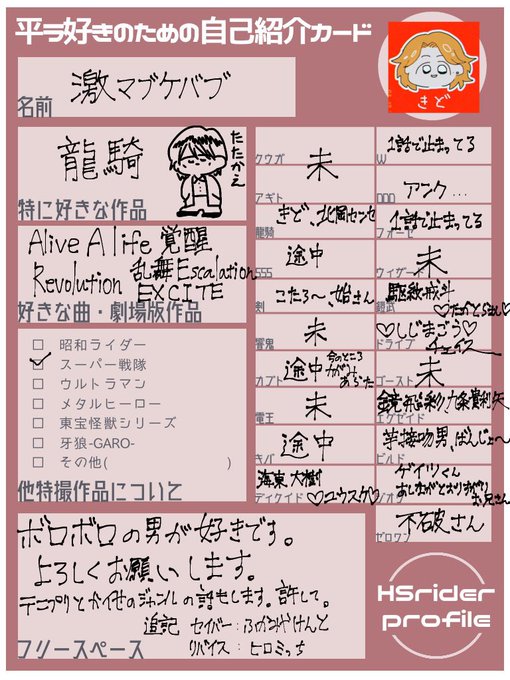 平ラ好きのための自己紹介カード
激マブケバブ
名前
きど
龍騎
たたかえ
特に好きな作品
Alive A life 覚醒
Revolution 乱舞Escalation
EXCITE
好きな曲・劇場版作品
昭和ライダー
スーパー戦隊
ウルトラマン
メタルヒーロー
東宝怪獣シリーズ
牙狼-GARO-
その他( )
他特撮作品について
クウガ
未
アギト
きど、北岡センセ
龍騎
途中
555
こたろ〜、始さん
剣
未
響鬼
途中 今のところ
かがみ
あらた
カブト
未
電王
途中
キバ
海東大樹
♡ユウスケ♡
ディケイド
1話で止まってる
W
アンク…
OOO
1話で止まってる
フォーゼ
未
ウィザード
駆紋戒斗
鎧武
♡しじまごう♡
チェイス
ドライブ
未
ゴースト
鏡飛彩、九条貴利矢
エグゼイド
ばんじょ〜
ビルド
ゲイツくん
お兄さん
ジオウ
不破さん
ゼロワン
ボロボロの男が好きです。
よろしくお願いします。
テニプリとかイセのジャンルの話もします。許して。
追記 セイバー:ふかみやけんと
リバイス:ヒロミっち
フリースペース
HSrider
profile